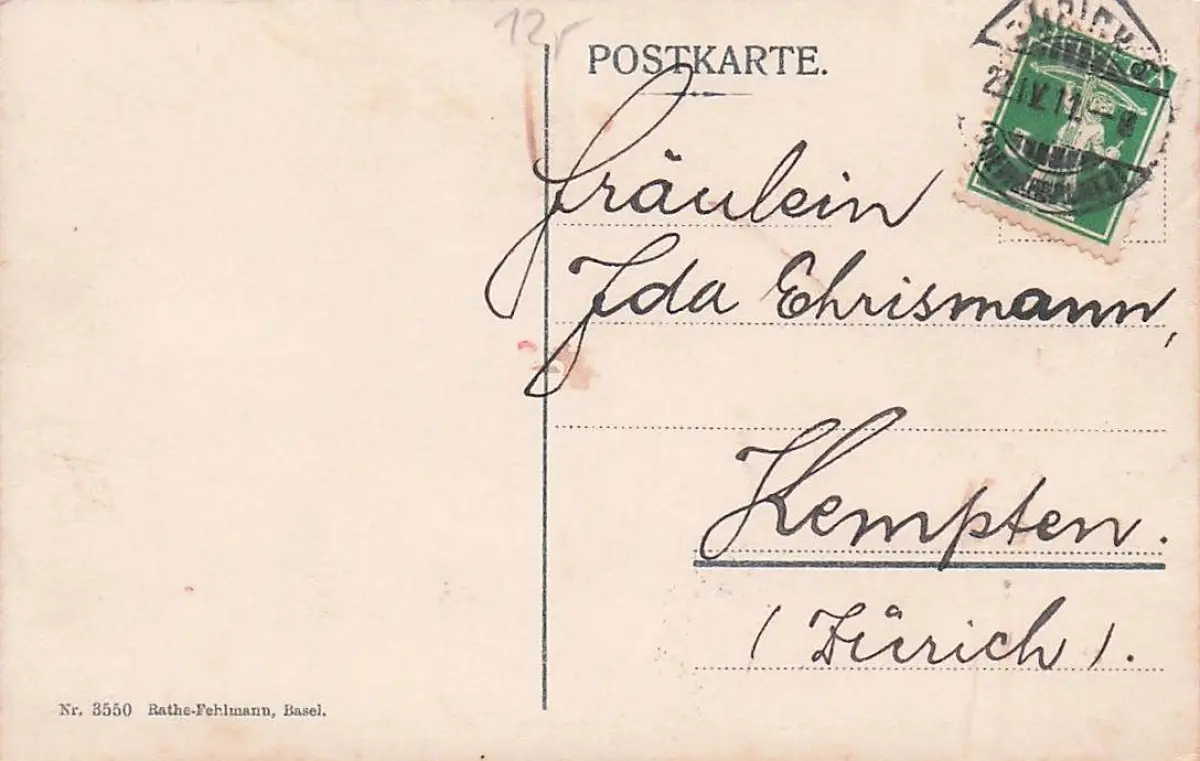 12.-
POSTKARTE.
23.IV.11.-8
Fräulein
Ida Ehrismann,
Kempten.
(Zürich).
Nr. 3550 Rathe-Fehlmann, Basel.